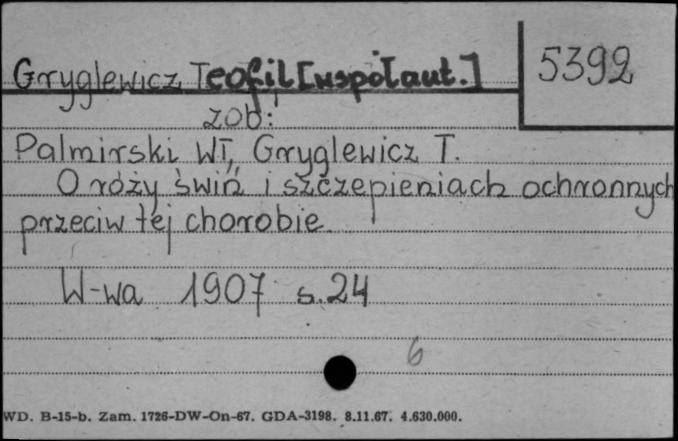 Gryglewicz Teofil [współaut.] 5392
zob:
Palmirski Wł, Gryglewicz T.
O róży świń i szczepieniach ochronnych
przeciw tej chorobie.
W-wa 1907 s.24
6
WD. B-15-b. Zam. 1726-DW-On-67. GDA-3198. 8.11.67. 4.630.000.